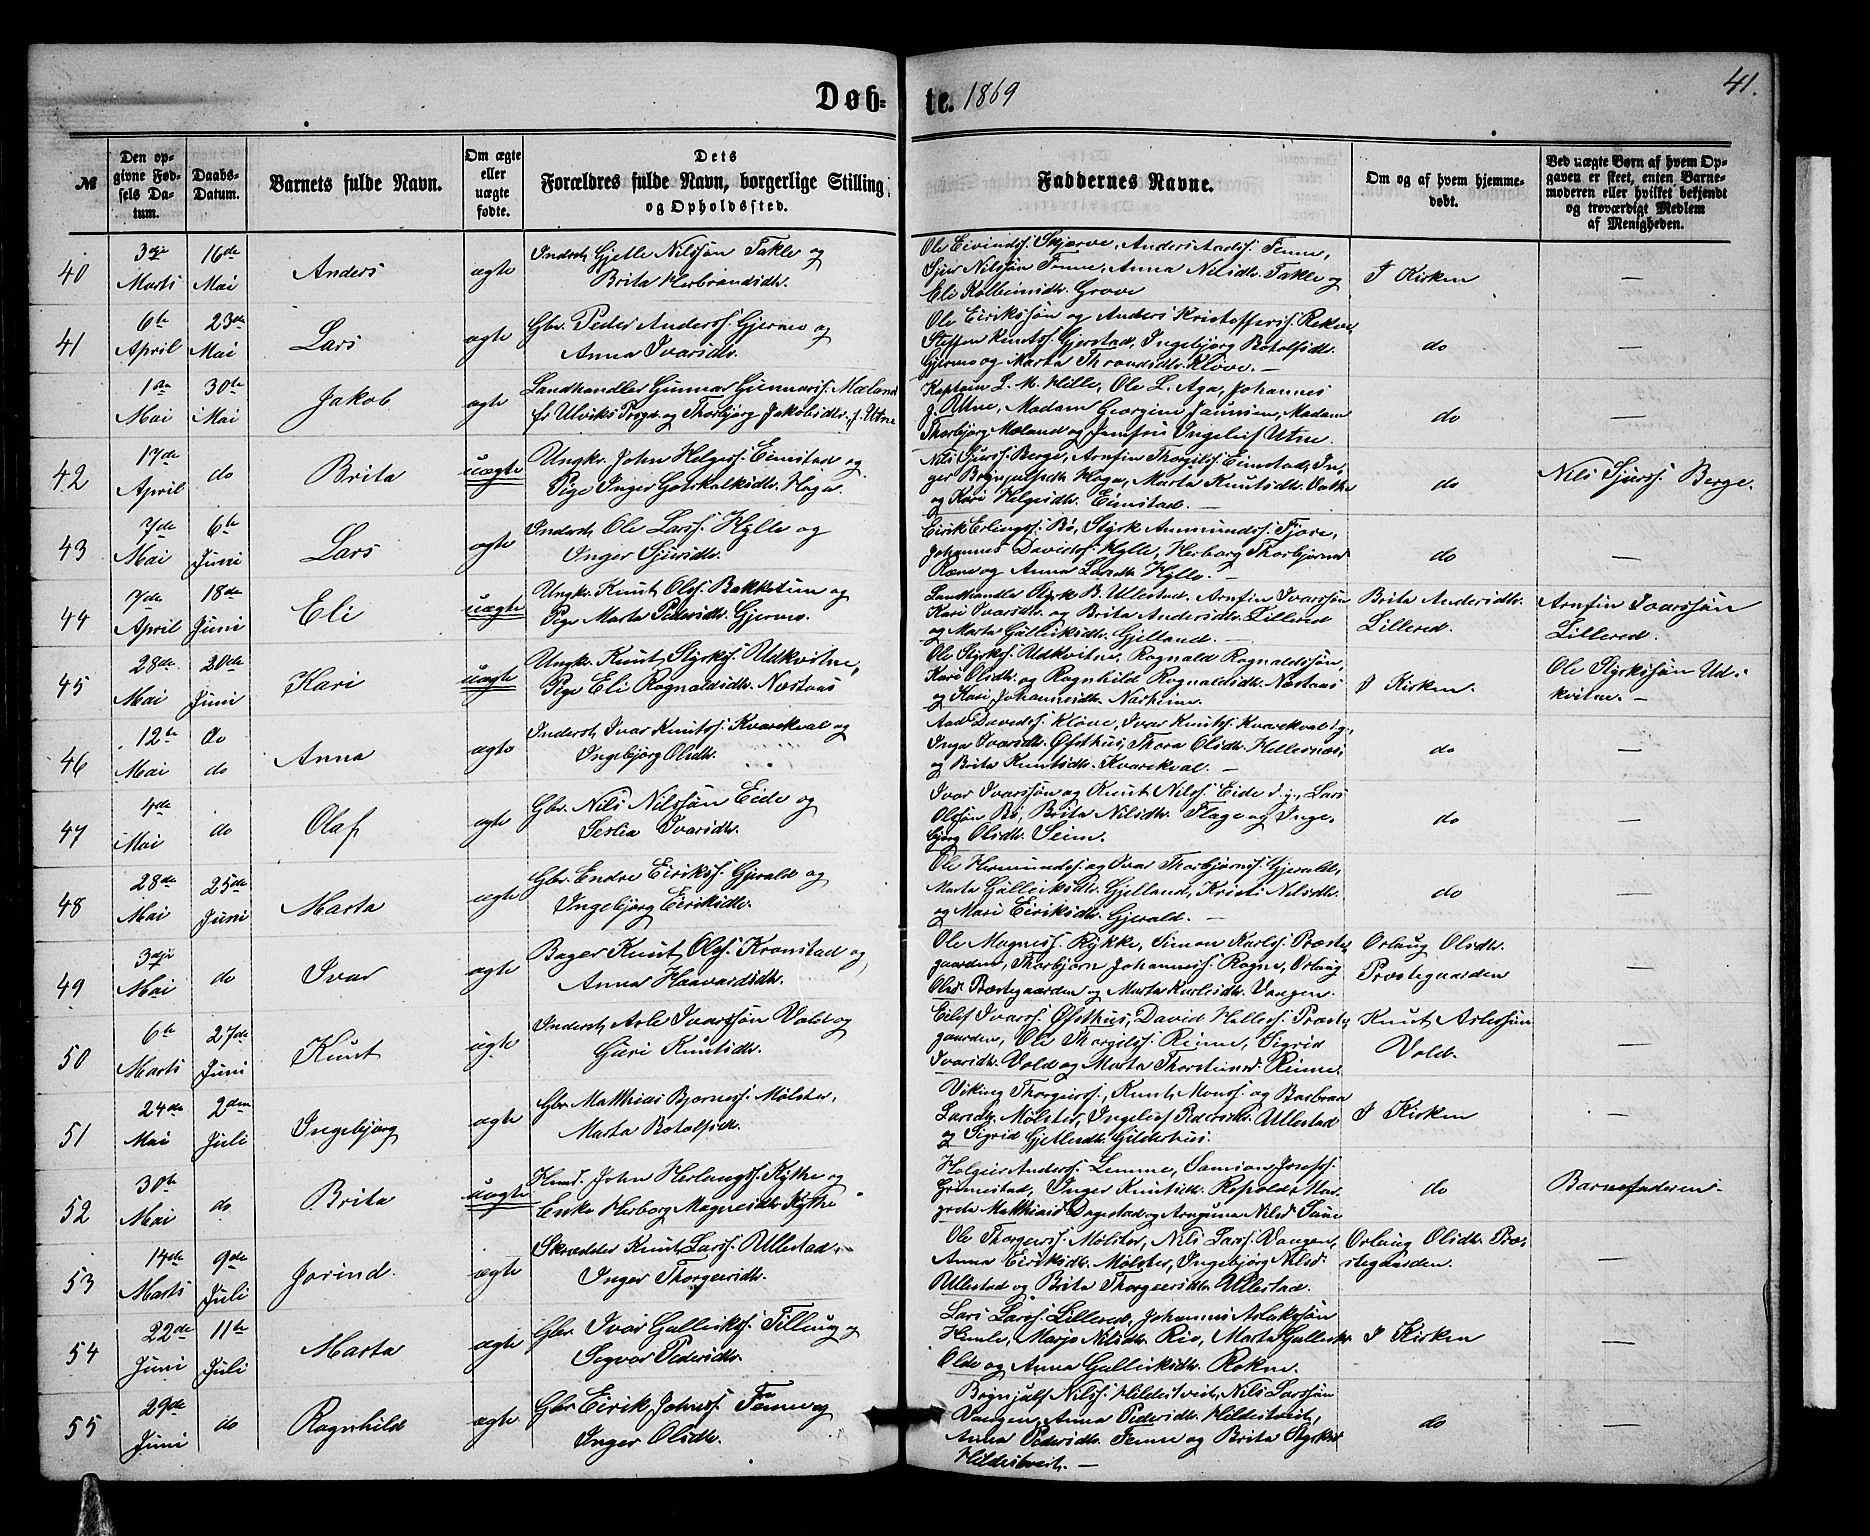 Døb-te. 1869
41.
№
Den opgivne Fødsels Datum.
Daabs-Datum.
Barnets fulde Navn.
Om ægte eller uægte fødte.
Dets Forældres fulde Navn, borgerlige Stilling og Opholdssted.
Faddernes Navne.
Om og af hvem hjemmedøbt.
Ved uægte Børn af hvem Opgaven er skeet, enten Barnemoderen eller hvilket bekjendt og troværdigt Medlem af Menigheden.
40 3die Marts 16de Mai Anders ægte
Inderst Gjetle Nilssøn Takle og
Brita Herbrandsdtr.
Ole Eivindss. Skjerve, Anders Aadss. Fenne,
Sjur Nilssøn Fenne, Anna Nilsdtr. Takle og
Eli Kolbeinsdtr. Grove
I Kirken —
41 6te April 23de Mai Lars ægte
Gbr. Peder Anderss. Gjerme og
Anna Ivarsdtr.
Ole Eirikssøn og Anders Kristoffers. Rekve,
Steffen Knutss. Gjerstad, Ingebjørg Botolfsdtr.
Gjerme og Marta Throndsdtr. Kløve. —
do —
42
1ste Mai 30te Mai Jakob ægte
Landhandler Gunnar Gunnarss. Mæland
fr Ulviks Prgd. og Thorbjørg Jakobsdtr. f. Utne
Kaptein L. M. Hille, Ole L. Aga, Johannes
J. Utne, Madam Georgine Jaunsen, Madam
Thorbjørg Mæland og Jomfru Ingelief Utne.
do —
17de April do Brita uægte
Ungkr. John Helgess. Eimstad og
Pige Inger Gotskalksdtr. Haga.
Nils Sjurss. Berge, Arnfin Thorgilss. Eimstad, In-
ger Brynjulfsdtr. Haga, Marta Knutsdtr. Vatle
og Kari Helgesdtr. Eimstad.
do
Nils Sjurss. Berge.
43 7de Mai 6te Juni Lars ægte
Inderst Ole Larss. Hylle og
Inger Sjursdtr.
Eirik Erlingss. Bø, Styrk Ammundss. Fjose,
Johannes Davidss. Hylle, Herborg Thorbjørnsd.
Rene og Anna Larsdtr. Hylle. —
do —
44 7de April 18de Juni Eli uægte
Ungkr. Knut Olss. Bakketun og
Pige Marta Pedersdtr. Gjerme.
Landhandler Styrk B. Ullestad, Arnfin Ivarssøn
Kari Ivarsdtr. og Brita Andersdtr. Lillered
og Marta Gulleiksdtr. Gjelland. —
Brita Andersdtr. Lillered.
Arnfin Ivarssøn Lillered.
45 28de Mai 20de Juni Kari uægte
Ungkr. Knut Styrkss. Udkvitne,
Pige Eli Rognaldsdtr. Næstaas
Ole Styrkss. Udkvitne, Rognald Rognaldssøn,
Kari Olsdtr. og Ragnhild Rognaldsdtr. Næstaas
og Kari Johannesdtr. Nasheim.
I Kirken.
Ole Styrkssøn Ud-kvitne. —
46 12te Mai do do Anna ægte
Inderst Ivar Knutss. Kvarekval og
Ingebjørg Olsdtr.
Aad Davidss. Kløve, Ivar Knutss. Kvarekval y.,
Inga Ivarsdtr. Øfsthus, Thora Olsdtr. Hellesnæs,
og Brita Knutsdtr. Kvarekval. —
do —
47 4de Mai do Olaf ægte
Gbr. Nils Nilssøn Eide og
Seslia Ivarsdtr.
Ivar Ivarssøn og Knut Nilss. Eide d. y., Lars
Olssøn Bø, Brita Nilsdtr. Flage og Inge-
bjørg Olsdtr. Seim.
do —
48 28de Mai 25de Juni Marta ægte
Gbr. Endre Eirikss. Gjerald og
Ingebjørg Eiriksdtr.
Ole Hermundss. og Ivar Thorbjørnss. Gjerald,
Marta Gulleiksdtr. Gjelland, Kristi Nilsdtr.
og Mari Eiriksdtr. Gjerald. —
do —
49 3die Mai do Ivar ægte
Bager Knut Olss. Kronstad og
Anna Haavardsdtr.
Ole Magness. Rykke, Simon Karlss. Præste-
gaarden, Thorbjørn Johanness. Rogne, Orlaug
Olsd. Præstegaarden og Marta Karlsdtr. Vangen.
Orlaug Olsdtr. Præstegaarden
—
50 6te Marts 27de Juni Knut ægte
Inderst Asle Ivarssøn Vold og
Guri Knutsdtr.
Eilef Ivarss. Øfsthus, David Helless. Præste-
gaarden, Ole Thorgilss. Rinne, Sigrid
Ivarsdtr. Vold og Marta Thorsteinsd. Rinne.
Knut Aslessøn Vold.
—
51 24de Mai 2den Juli Ingebjørg ægte
Gbr. Matthias Bjørness. Mølster,
Marta Botolfsdtr.
Viking Thorgeirss., Knut Monss. og Barbraa
Larsdtr. Mølster, Ingelief Pedersdtr. Ullestad
og Sigrid Gjetlesdtr. Gilderhus.
I Kirken —
52 30te Mai do Brita uægte
Huusm. John Herlaugss. Kythe og
Enke Herborg Magnesdtr. Kythe
Holgeir Anderss. Lemme, Samson Josefss.
Grimestad, Inger Knutsdtr. Repold, Mar-
greta Matthiasd. Dagestad og Arnguna Nilsd. Saue
do
Barnefaderen.
53 14de Marts 9de Juli Jorind. ægte
Skrædder Knut Larss. Ullestad,
Inger Thorgeirsdtr.
Ole Thorgeirss. Mølster, Nils Larss. Vangen,
Anna Eiriksdtr. Mølster, Ingebjørg Nilsd
Ullestad og Brita Thorgeirsdtr. Ullestad.
Orlaug Olsdtr. Præ-stegaarden.
—
54 22de Juni 11te Juli Marta ægte
Gbr Ivar Gulleikss. Tillung og
Sygvor Pedersdtr.
Lars Larss. Lillered, Johannes Aslakssøn
Himle, Marjo Nilsdtr. Rio, Marta Gulleiks
Olde og Anna Gulleiksdtr. Rokne.
I Kirken —
55 29de Juni do Ragnhild ægte
Gbr Eirik Johnss. Fenne og
Inger Olsdtr.
Brynjulf Nilss. Hildestveit, Nils Larssøn
Vangen, Anna Pedersdtr. Hildestveit,
Anna Pedersdtr. Fenne og Brita Styrksd
Hildestveit. —
do —